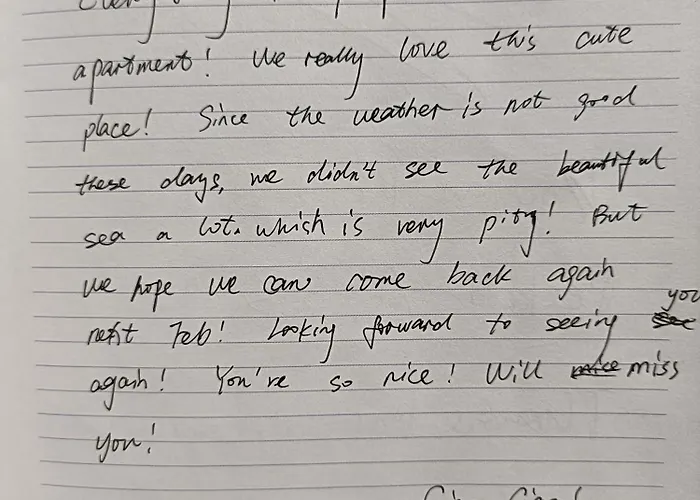 apartment! We really love this cute
place! Since the weather is not good
these days, we didn't see the beautiful
sea a lot. which is very pity! But
we hope we can come back again
you
next Feb! Looking forward to seeing
again! You're so nice! Will miss
you!